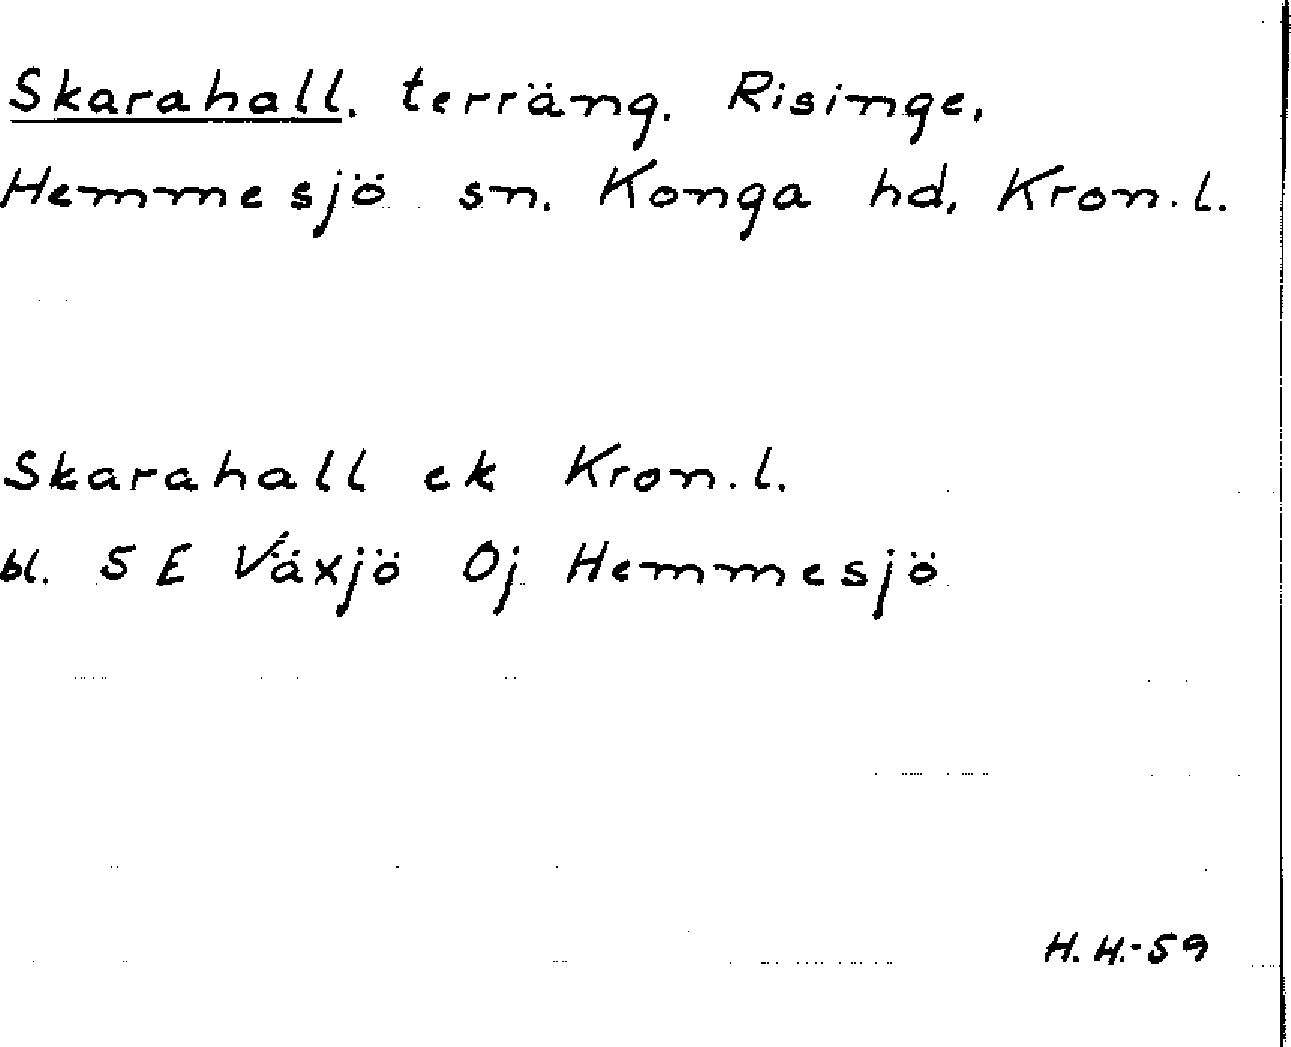 Skarahall. terräng. Risinge,
Hemmesjö sn. Konga hd, Kron.l.
Skarahall ek Kron.l.
bl. 5 E Växjö Oj Hemmesjö
H.H.-59